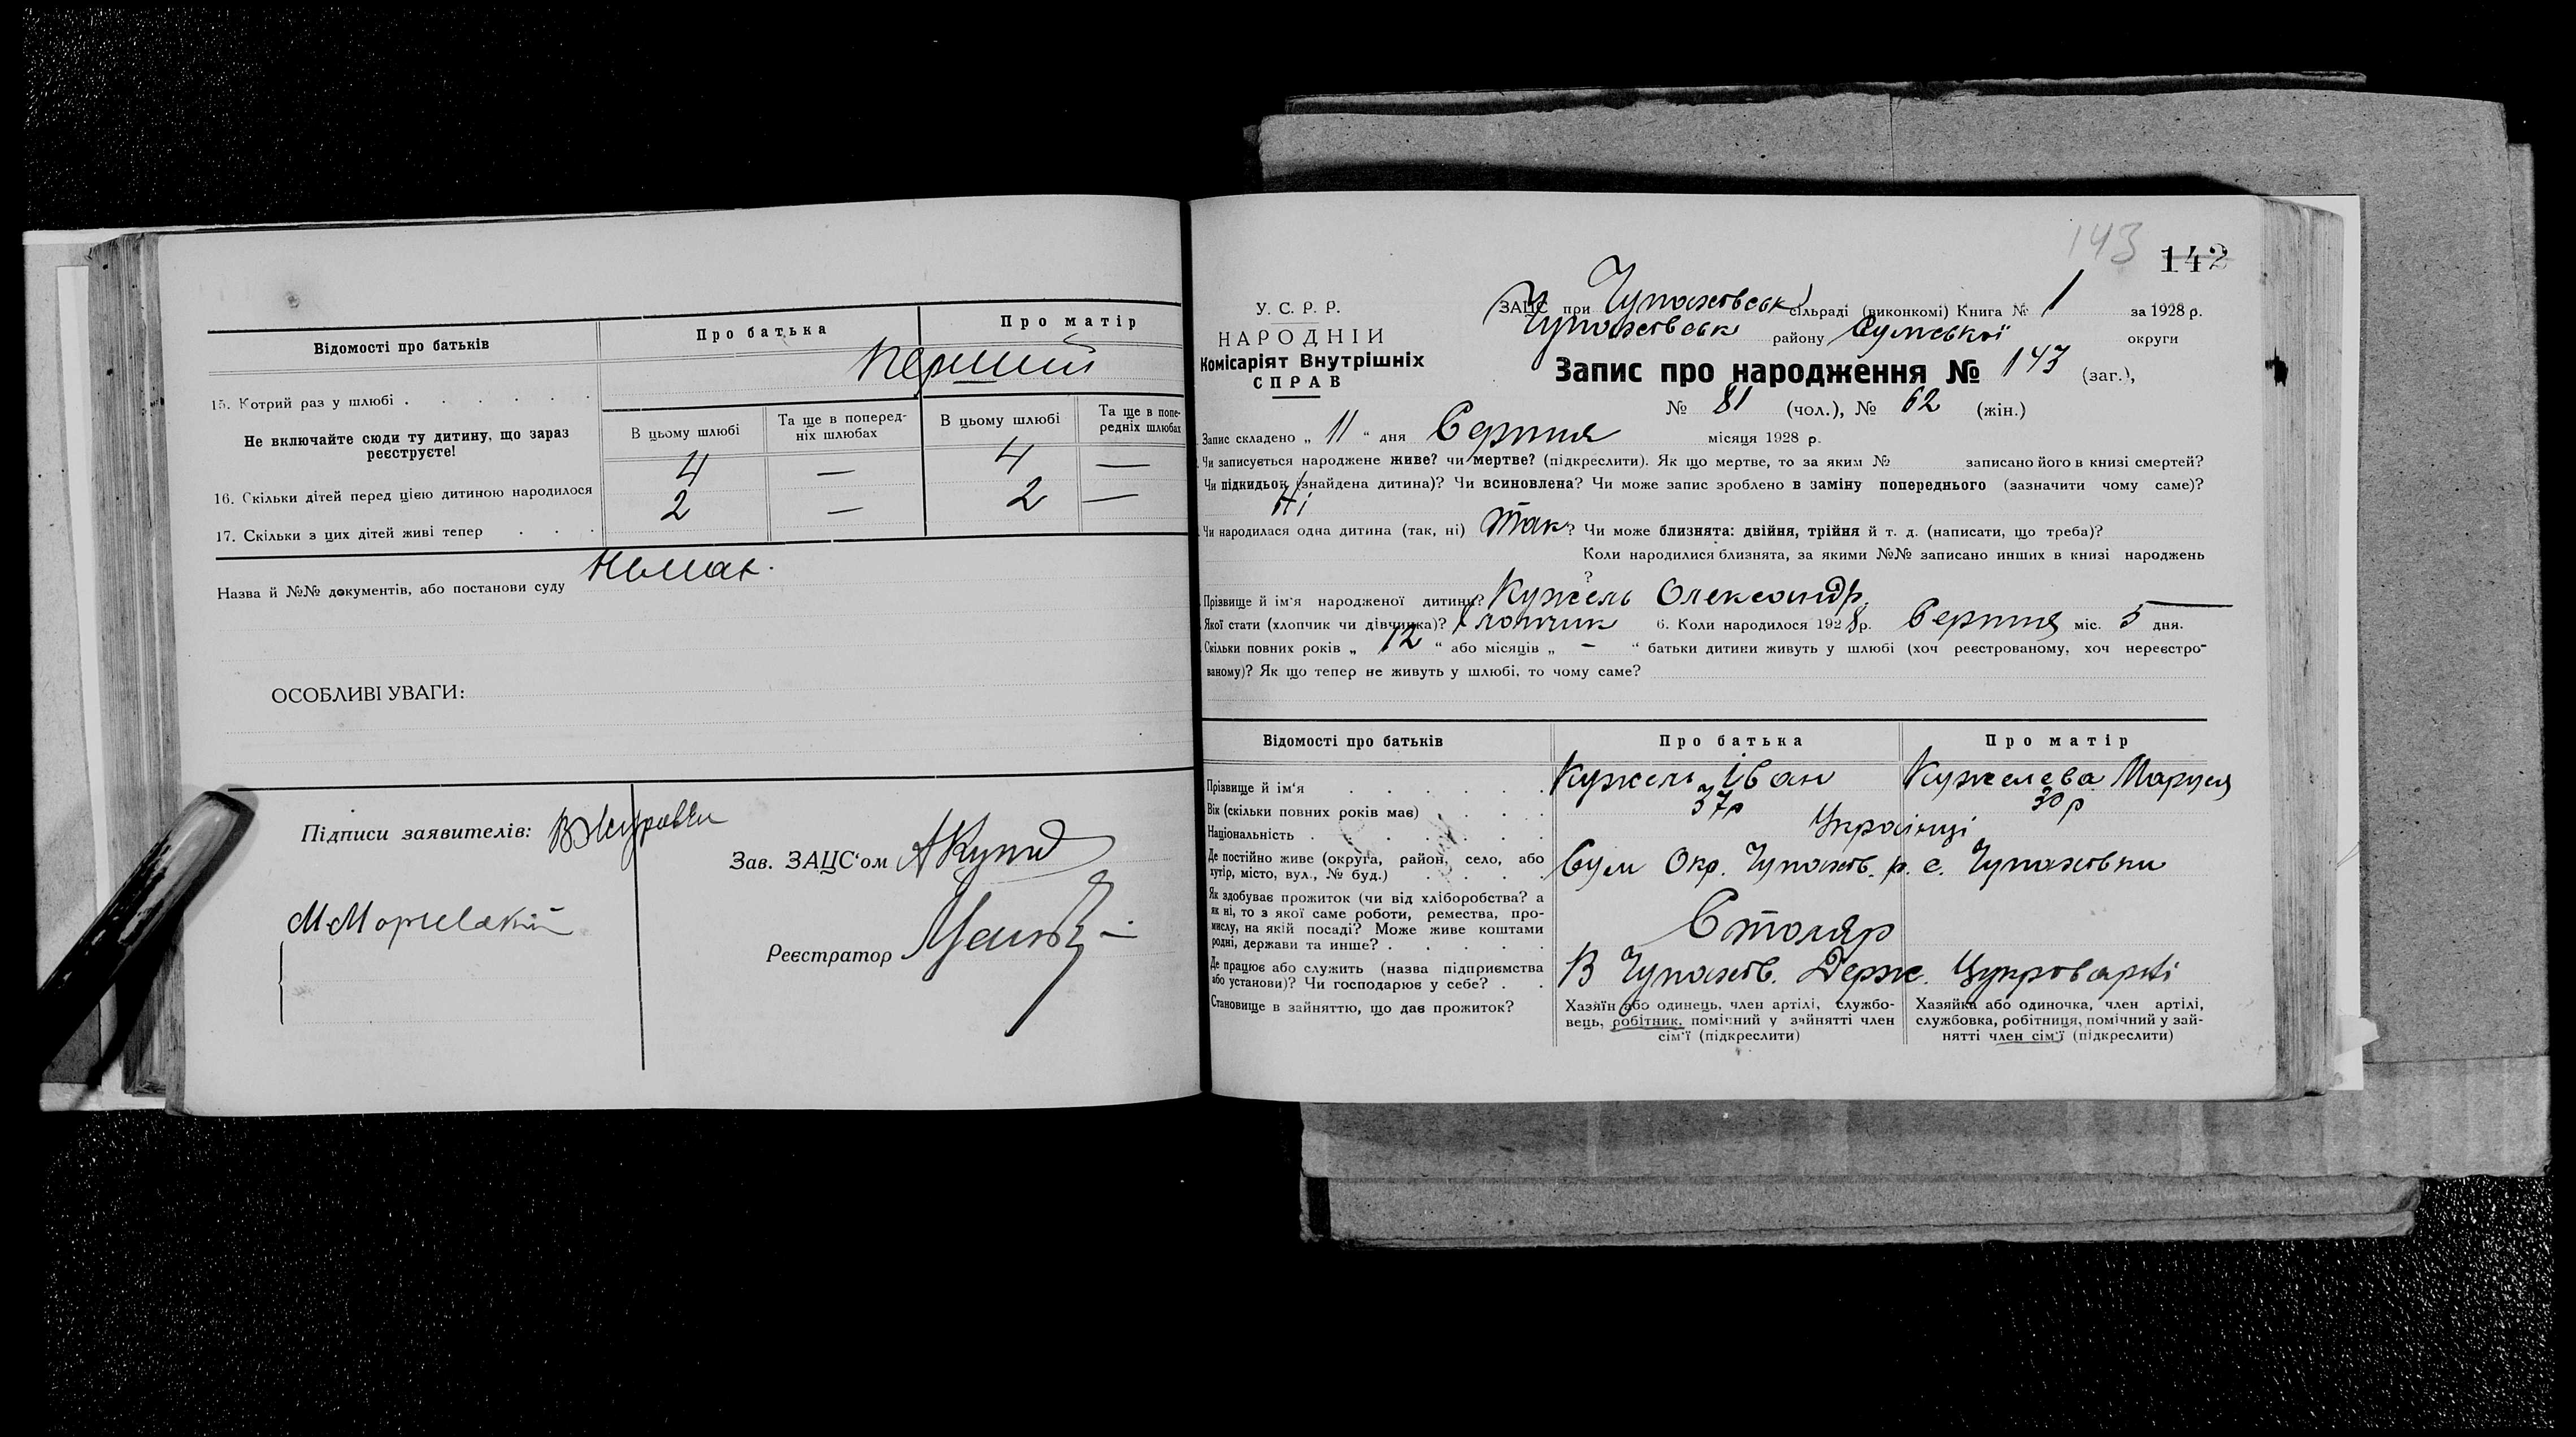 Відомості про батьків
Про батька
Про матір
15. Котрий раз у шлюбі . . . . . .
Перший
Не включайте сюди ту дитину, що зараз реєструєте!
В цьому шлюбі
Та ще в поперед-
ніх шлюбах
В цьому шлюбі
Та ще в попе-
редніх шлюбах
16. Скільки дітей перед цією дитиною народилося 4 — 4 —
17. Скільки з цих дітей живі тепер . . . 2 — 2 —
Назва й №№ документів, або постанови суду Немає.
ОСОБЛИВІ УВАГИ:
Підписи заявителів:
Зав. ЗАЦС‘ом
Реєстратор
143 142
У. С. Р. Р.
НАРОДНІЙ
Комісаріят Внутрішніх
СПРАВ
ЗАЦС при Чупахівськ сільраді (виконкомі) Книга № 1 за 1928 р.
Чупахівськ району Сумської округи
Запис про народження № 143 (заг.),
№ 81 (чол.), № 62 (жін.)
Запис складено „ 11 “ дня Серпня місяця 1928 р.
Чи записується народжене живе? чи мертве? (підкреслити). Як що мертве, то за яким № записано його в книзі смертей?
Чи підкидьок (знайдена дитина)? Чи всиновлена? Чи може запис зроблено в заміну попереднього (зазначити чому саме)?
Ні
Чи народилася одна дитина (так, ні) Так? Чи може близнята: двійня, трійня й т. д. (написати, що треба)?
Коли народилися близнята, за якими №№ записано инших в книзі народжень
?
Прізвище й ім‘я народженої дитини? Кужель Олександр.
Якої стати (хлопчик чи дівчинка)? Хлопчик 6. Коли народилося 1928 р. Серпня міс. 5 дня.
Скільки повних років „ 12 “ або місяців „ - “ батьки дитини живуть у шлюбі (хоч реєстрованому, хоч нереєстро-
ваному)? Як що тепер не живуть у шлюбі, то чому саме?
Відомості про батьків
Про батька
Про матір
Прізвище й ім‘я . . . . . . Кужель Іван Кужелева Маруся
Вік (скільки повних років має) . . . . 37р 30 р
Національність . . . . . . . Українці
Де постійно живе (округа, район, село, або
хутір, місто, вул., № буд.) . . . . Сум Окр. Чупахів. р. с. Чупахівки
Як здобуває прожиток (чи від хліборобства? а
як ні, то з якої саме роботи, ремества, про-
мислу, на якій посаді? Може живе коштами
родні, держави та инше? . . . . .
Столяр
Де працює або служить (назва підприємства
або установи)? Чи господарює у себе? . .
В Чупахів. Держ. Цукроварні
Становище в зайняттю, що дає прожиток?
Хазяїн або одинець, член артілі, службо-
вець, робітник, помічний у зайнятті член
сім‘ї (підкреслити)
Хазяйка або одиночка, член артілі,
службовка, робітниця, помічний у зай-
нятті член сім‘ї (підкреслити)